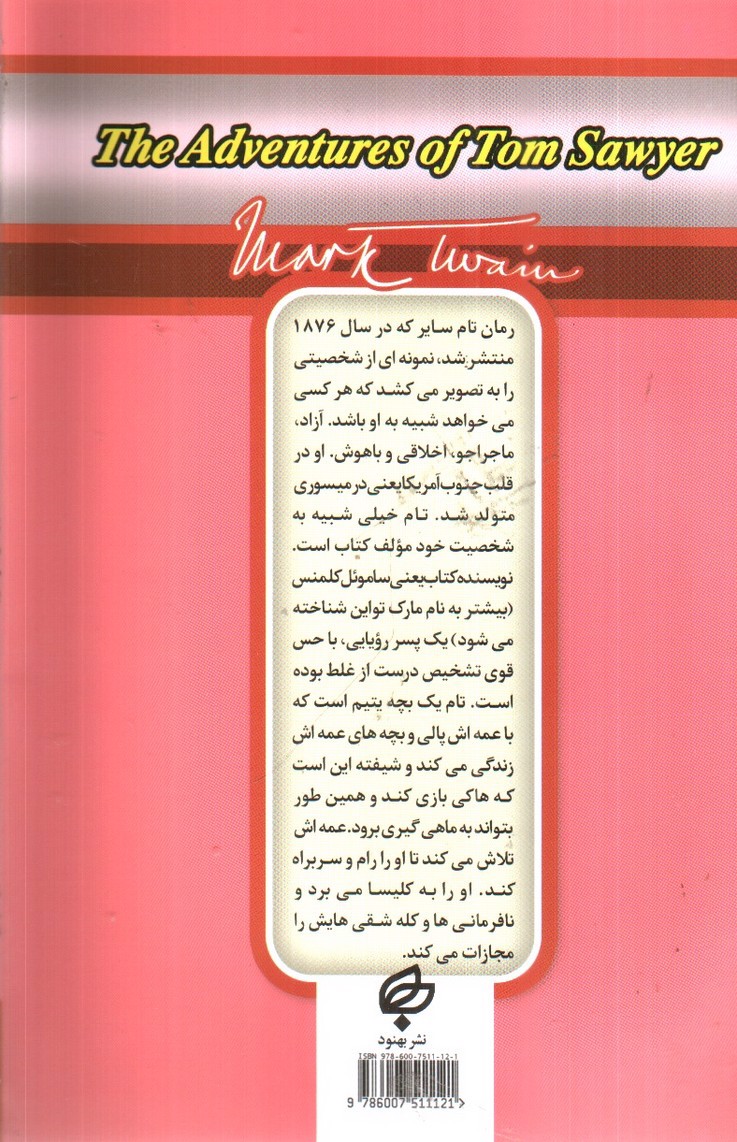 The Adventures of Tom Sawyer
Mark Twain
رمان تام سایر که در سال ۱۸۷۶
منتشر شد، نمونه ای از شخصیتی
را به تصویر می کشد که هر کسی
می خواهد شبیه به او باشد. آزاد،
ماجراجو، اخلاقی و باهوش. او در
قلب جنوب آمریکا یعنی در میسوری
متولد شد. تام خیلی شبیه به
شخصیت خود مؤلف کتاب است.
نویسنده کتاب یعنی ساموئل کلمنس
(بیشتر به نام مارک تواین شناخته
می شود) یک پسر رؤیایی، با حس
قوی تشخیص درست از غلط بوده
است. تام یک بچه یتیم است که
با عمه اش پالی و بچه های عمه اش
زندگی می کند و شیفته این است
که هاکی بازی کند و همین طور
بتواند به ماهی گیری برود. عمه اش
تلاش می کند تا او را رام و سربراه
کند. او را به کلیسا می برد و
نافرمانی ها و کله شقی هایش را
مجازات می کند.
نشر بهنود
ISBN 978-600-7511-12-1
9 786007 511121>